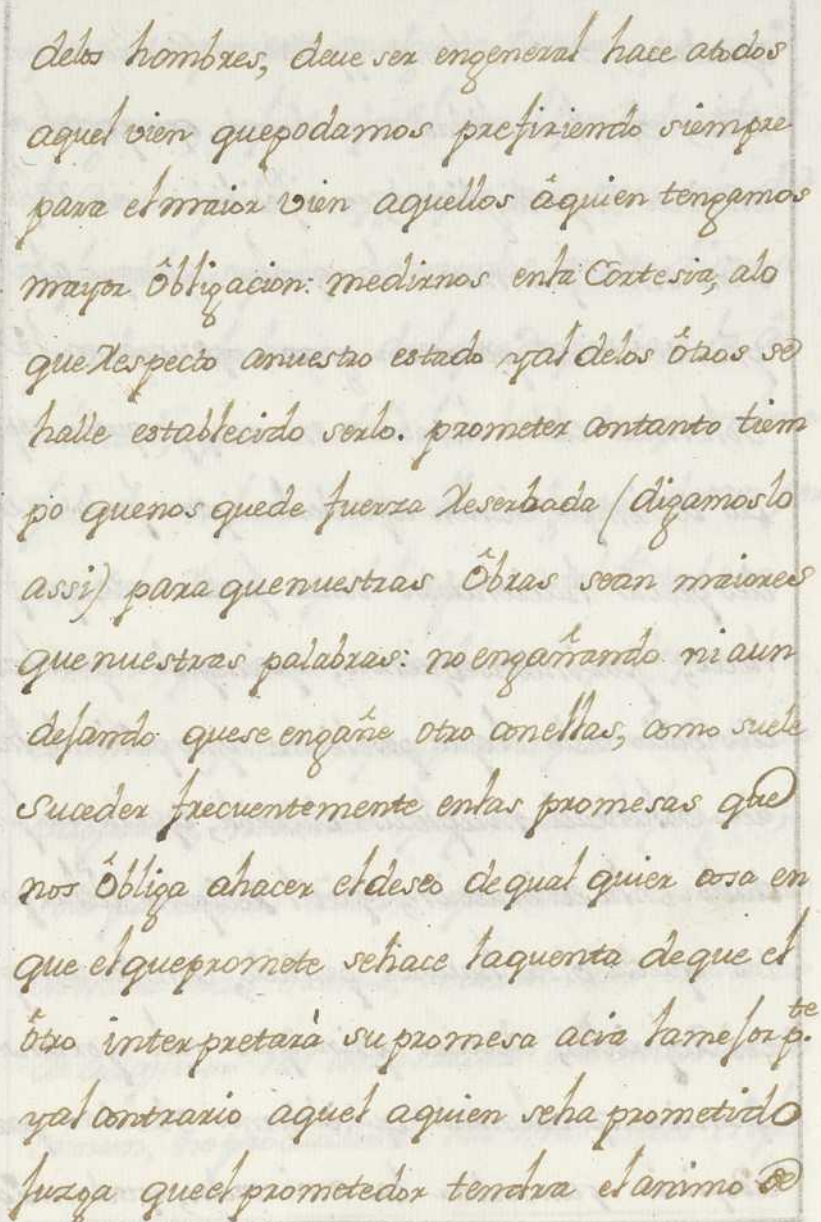 delos hombres, deve ser engeneral hace atodos
aquel vien quepodamos prefiriendo siempre
para elmaior vien aquellos âquien tengamos
mayor Ôbligacion: medirnos enla Cortesia, alo
queRespecto anuestro estado yal delos ôtros se
halle establecido serlo. prometer contanto tiem
po quenos quede fuerza Reserbada (digamoslo
assi) para quenuestras Ôbras sean maiores
quenuestras palabras: noengañando ni aun
dejando quese engañe otro conellas, como suele
suceder frecuentemente enlas promesas que
nos Ôbliga ahacer eldeseo dequal quier cosa en
que elquepromete sehace laquenta deque el
ôtro interpretarà supromesa acia lamejor p.te
yalcontrario aquel aquien seha prometido
juzga queelprometedor tendra elanimo de